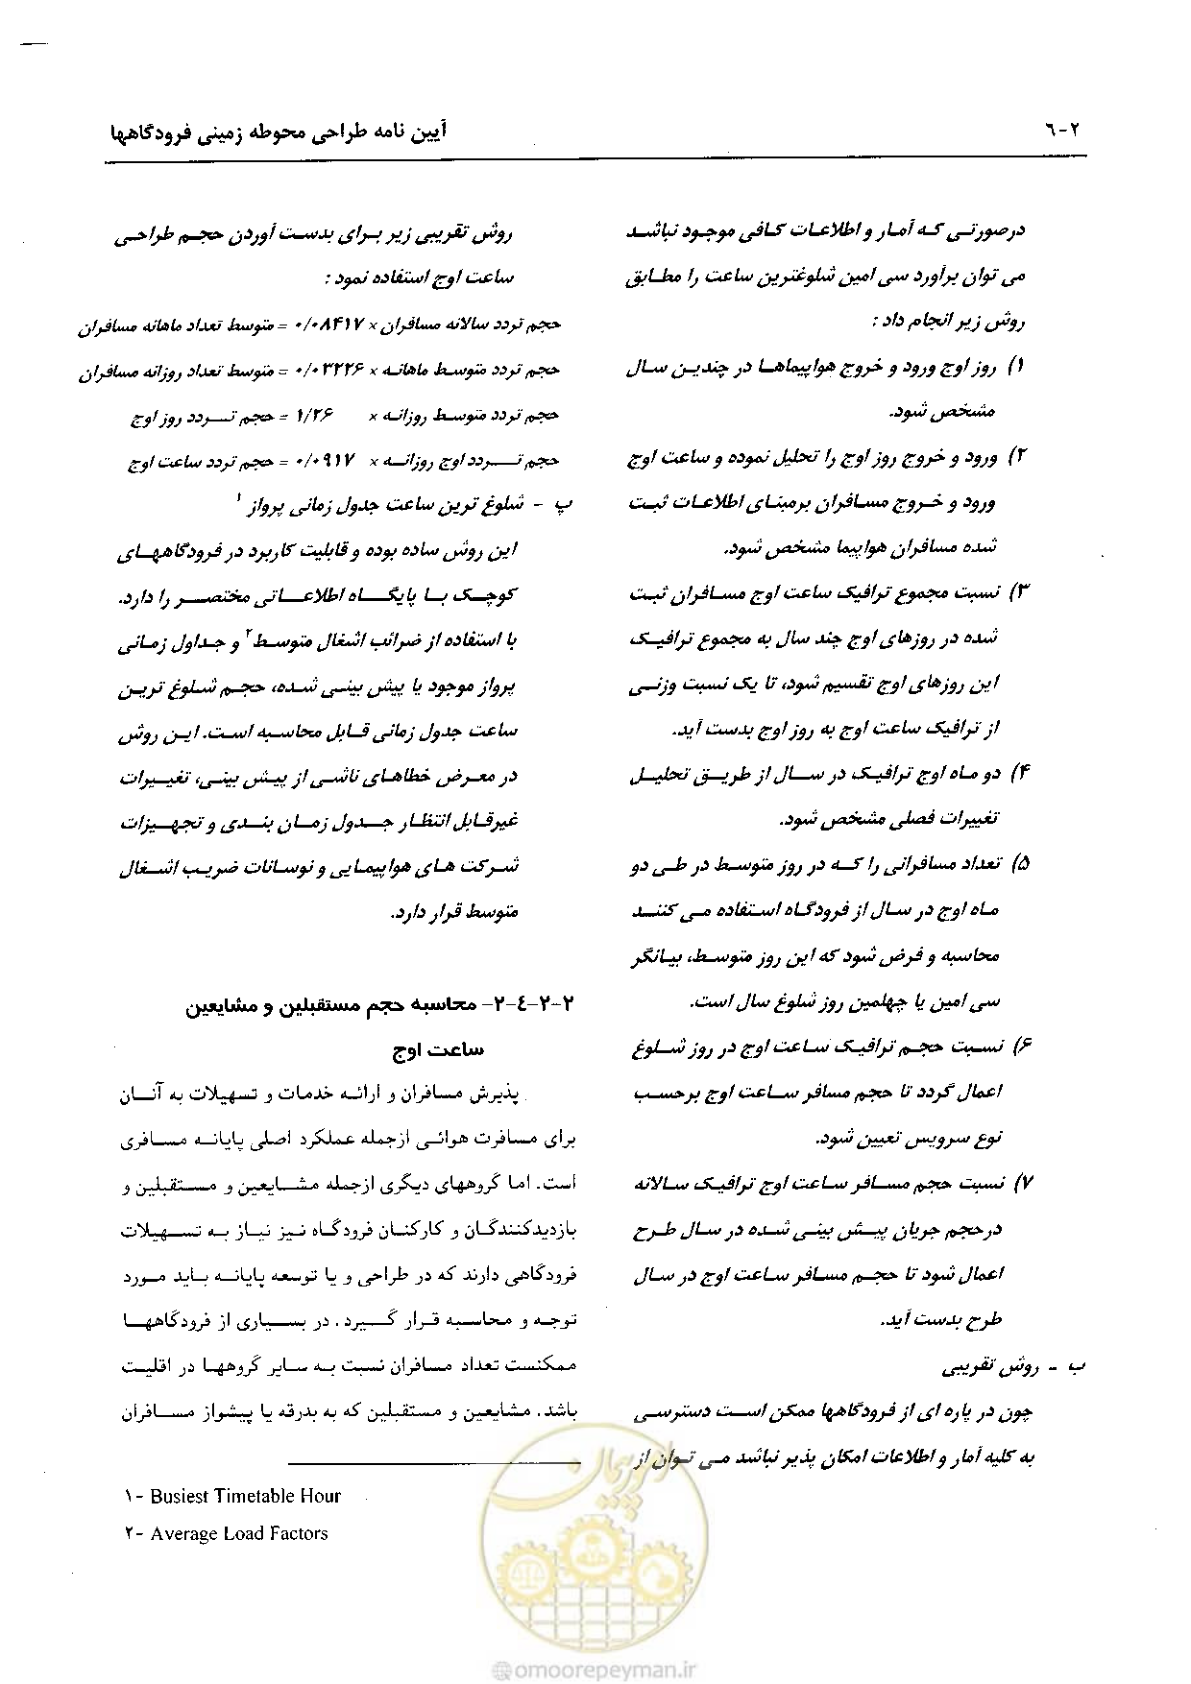 ۶-۲
آیین نامه طراحی محوطه زمینی فرودگاهها
درصورتی که آمار و اطلاعات کافی موجود نباشد
می توان برآورد سی امین شلوغترین ساعت را مطابق
روش زیر انجام داد :
۱) روز اوج ورود و خروج هواپیماها در چندین سال
مشخص شود.
۲) ورود و خروج روز اوج را تحلیل نموده و ساعت اوج
ورود و خروج مسافران برمبنای اطلاعات ثبت
شده مسافران هواپیما مشخص شود.
۳) نسبت مجموع ترافیک ساعت اوج مسافران ثبت
شده در روزهای اوج چند سال به مجموع ترافیک
این روزهای اوج تقسیم شود، تا یک نسبت وزنی
از ترافیک ساعت اوج به روز اوج بدست آید.
۴) دو ماه اوج ترافیک در سال از طریق تحلیل
تغییرات فصلی مشخص شود.
۵) تعداد مسافرانی را که در روز متوسط در طی دو
ماه اوج در سال از فرودگاه استفاده می کنند
محاسبه و فرض شود که این روز متوسط، بیانگر
سی امین یا چهلمین روز شلوغ سال است.
۶) نسبت حجم ترافیک ساعت اوج در روز شلوغ
اعمال گردد تا حجم مسافر ساعت اوج برحسب
نوع سرویس تعیین شود.
۷) نسبت حجم مسافر ساعت اوج ترافیک سالانه
درحجم جریان پیش بینی شده در سال طرح
اعمال شود تا حجم مسافر ساعت اوج در سال
طرح بدست آید.
ب - روش تقریبی
چون در پاره ای از فرودگاهها ممکن است دسترسی
به کلیه آمار و اطلاعات امکان پذیر نباشد می توان از
روش تقریبی زیر برای بدست آوردن حجم طراحی
ساعت اوج استفاده نمود :
حجم تردد سالانه مسافران × ۰/۰۸۴۱۷ = متوسط تعداد ماهانه مسافران
حجم تردد متوسط ماهانه × ۰/۰۳۲۲۶ = متوسط تعداد روزانه مسافران
حجم تردد متوسط روزانه × ۱/۲۶ = حجم تردد روز اوج
حجم تردد اوج روزانه × ۰/۰۹۱۷ = حجم تردد ساعت اوج
پ - شلوغ ترین ساعت جدول زمانی پرواز ۱
این روش ساده بوده و قابلیت کاربرد در فرودگاههای
کوچک با پایگاه اطلاعاتی مختصر را دارد.
با استفاده از ضرائب اشغال متوسط۲ و جداول زمانی
پرواز موجود یا پیش بینی شده، حجم شلوغ ترین
ساعت جدول زمانی قابل محاسبه است. این روش
در معرض خطاهای ناشی از پیش بینی، تغییرات
غیرقابل انتظار جدول زمان بندی و تجهیزات
شرکت های هواپیمایی و نوسانات ضریب اشغال
متوسط قرار دارد.
۲-۲-٤-۲- محاسبه حجم مستقبلین و مشایعین
ساعت اوج
پذیرش مسافران و ارائه خدمات و تسهیلات به آنان
برای مسافرت هوائی ازجمله عملکرد اصلی پایانه مسافری
است. اما گروههای دیگری ازجمله مشایعین و مستقبلین و
بازدیدکنندگان و کارکنان فرودگاه نیز نیاز به تسهیلات
فرودگاهی دارند که در طراحی و یا توسعه پایانه باید مورد
توجه و محاسبه قرار گیرد . در بسیاری از فرودگاهها
ممکنست تعداد مسافران نسبت به سایر گروهها در اقلیت
باشد. مشایعین و مستقبلین که به بدرقه یا پیشواز مسافران
۱- Busiest Timetable Hour
۲- Average Load Factors
امور پیمان
@omoorepeyman.ir